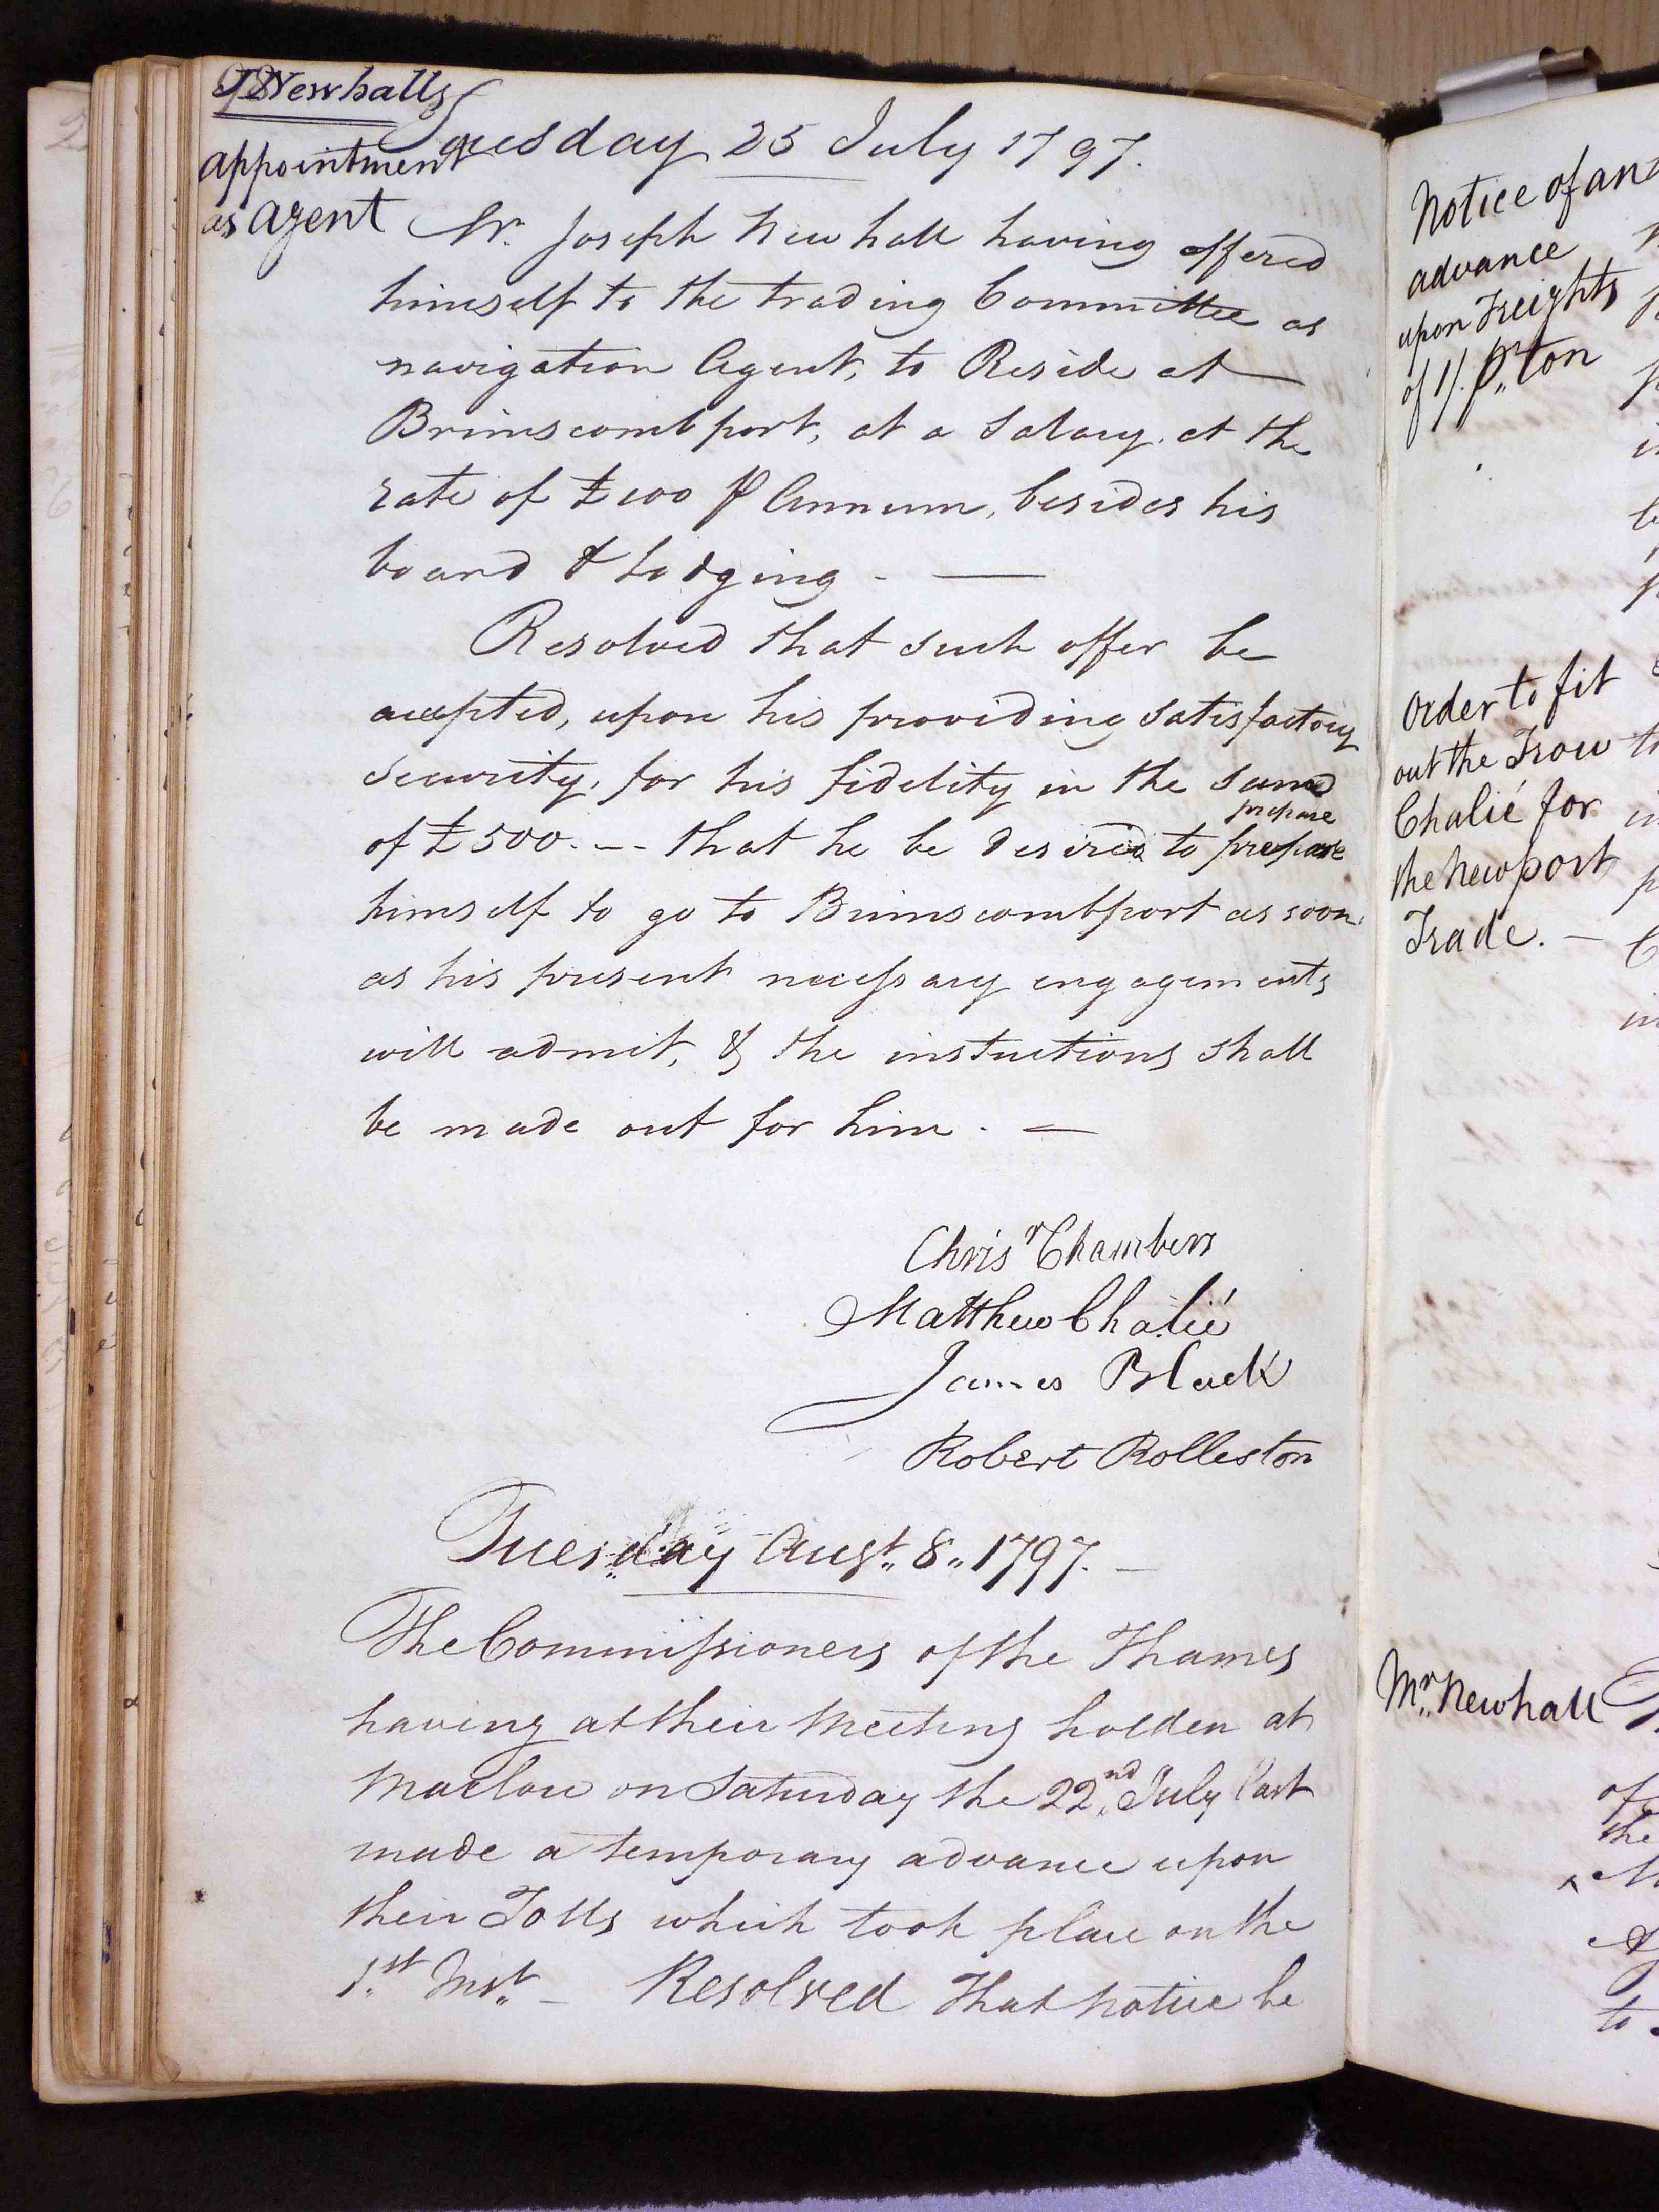 J Newhalls
appointment
as agent
Tuesday 25 July 1797.
Mr. Joseph Newhall having offered
himself to the trading Committee as
navigation Agent, to Reside at
Brimscomb port, at a Salary at the
rate of £100 ⅌ Annum, besides his
board & Lodging. —
Resolved that such offer be
accepted, upon his providing satisfactory
security, for his fidelity in the sum
of £500. -- that he be desired to prepare
prepare
himself to go to Brimscombport as soon
as his present necessary engagements
will admit, & the instuctions shall
be made out for him. —
Chrisr Chambers
Matthew Chalié
James Black
Robert Rolleston
Tuesday Augt. 8. 1797. —
The Commissioners of the Thames
having at their Meeting holden at
Marlow on Saturday the 22nd. July last
made a temporary advance upon
their Tolls which took place on the
1.st Inst. — Resolved That notice be
Notice of an
advance
upon Freights
of 1/. pr. ton
Order to fit
out the Trow
Chalié for
the Newport
Trade. —
Mr. Newhall
of
the
to